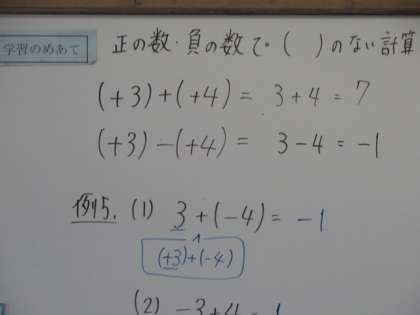 学習のめあて
正の数・負の数で・( )のない計算
(+3)+(+4) = 3+4 = 7
(+3)-(+4) = 3-4 = -1
例5. (1) 3+(-4) = -1
(+3)+(-4)
(2) -3+4 = 1